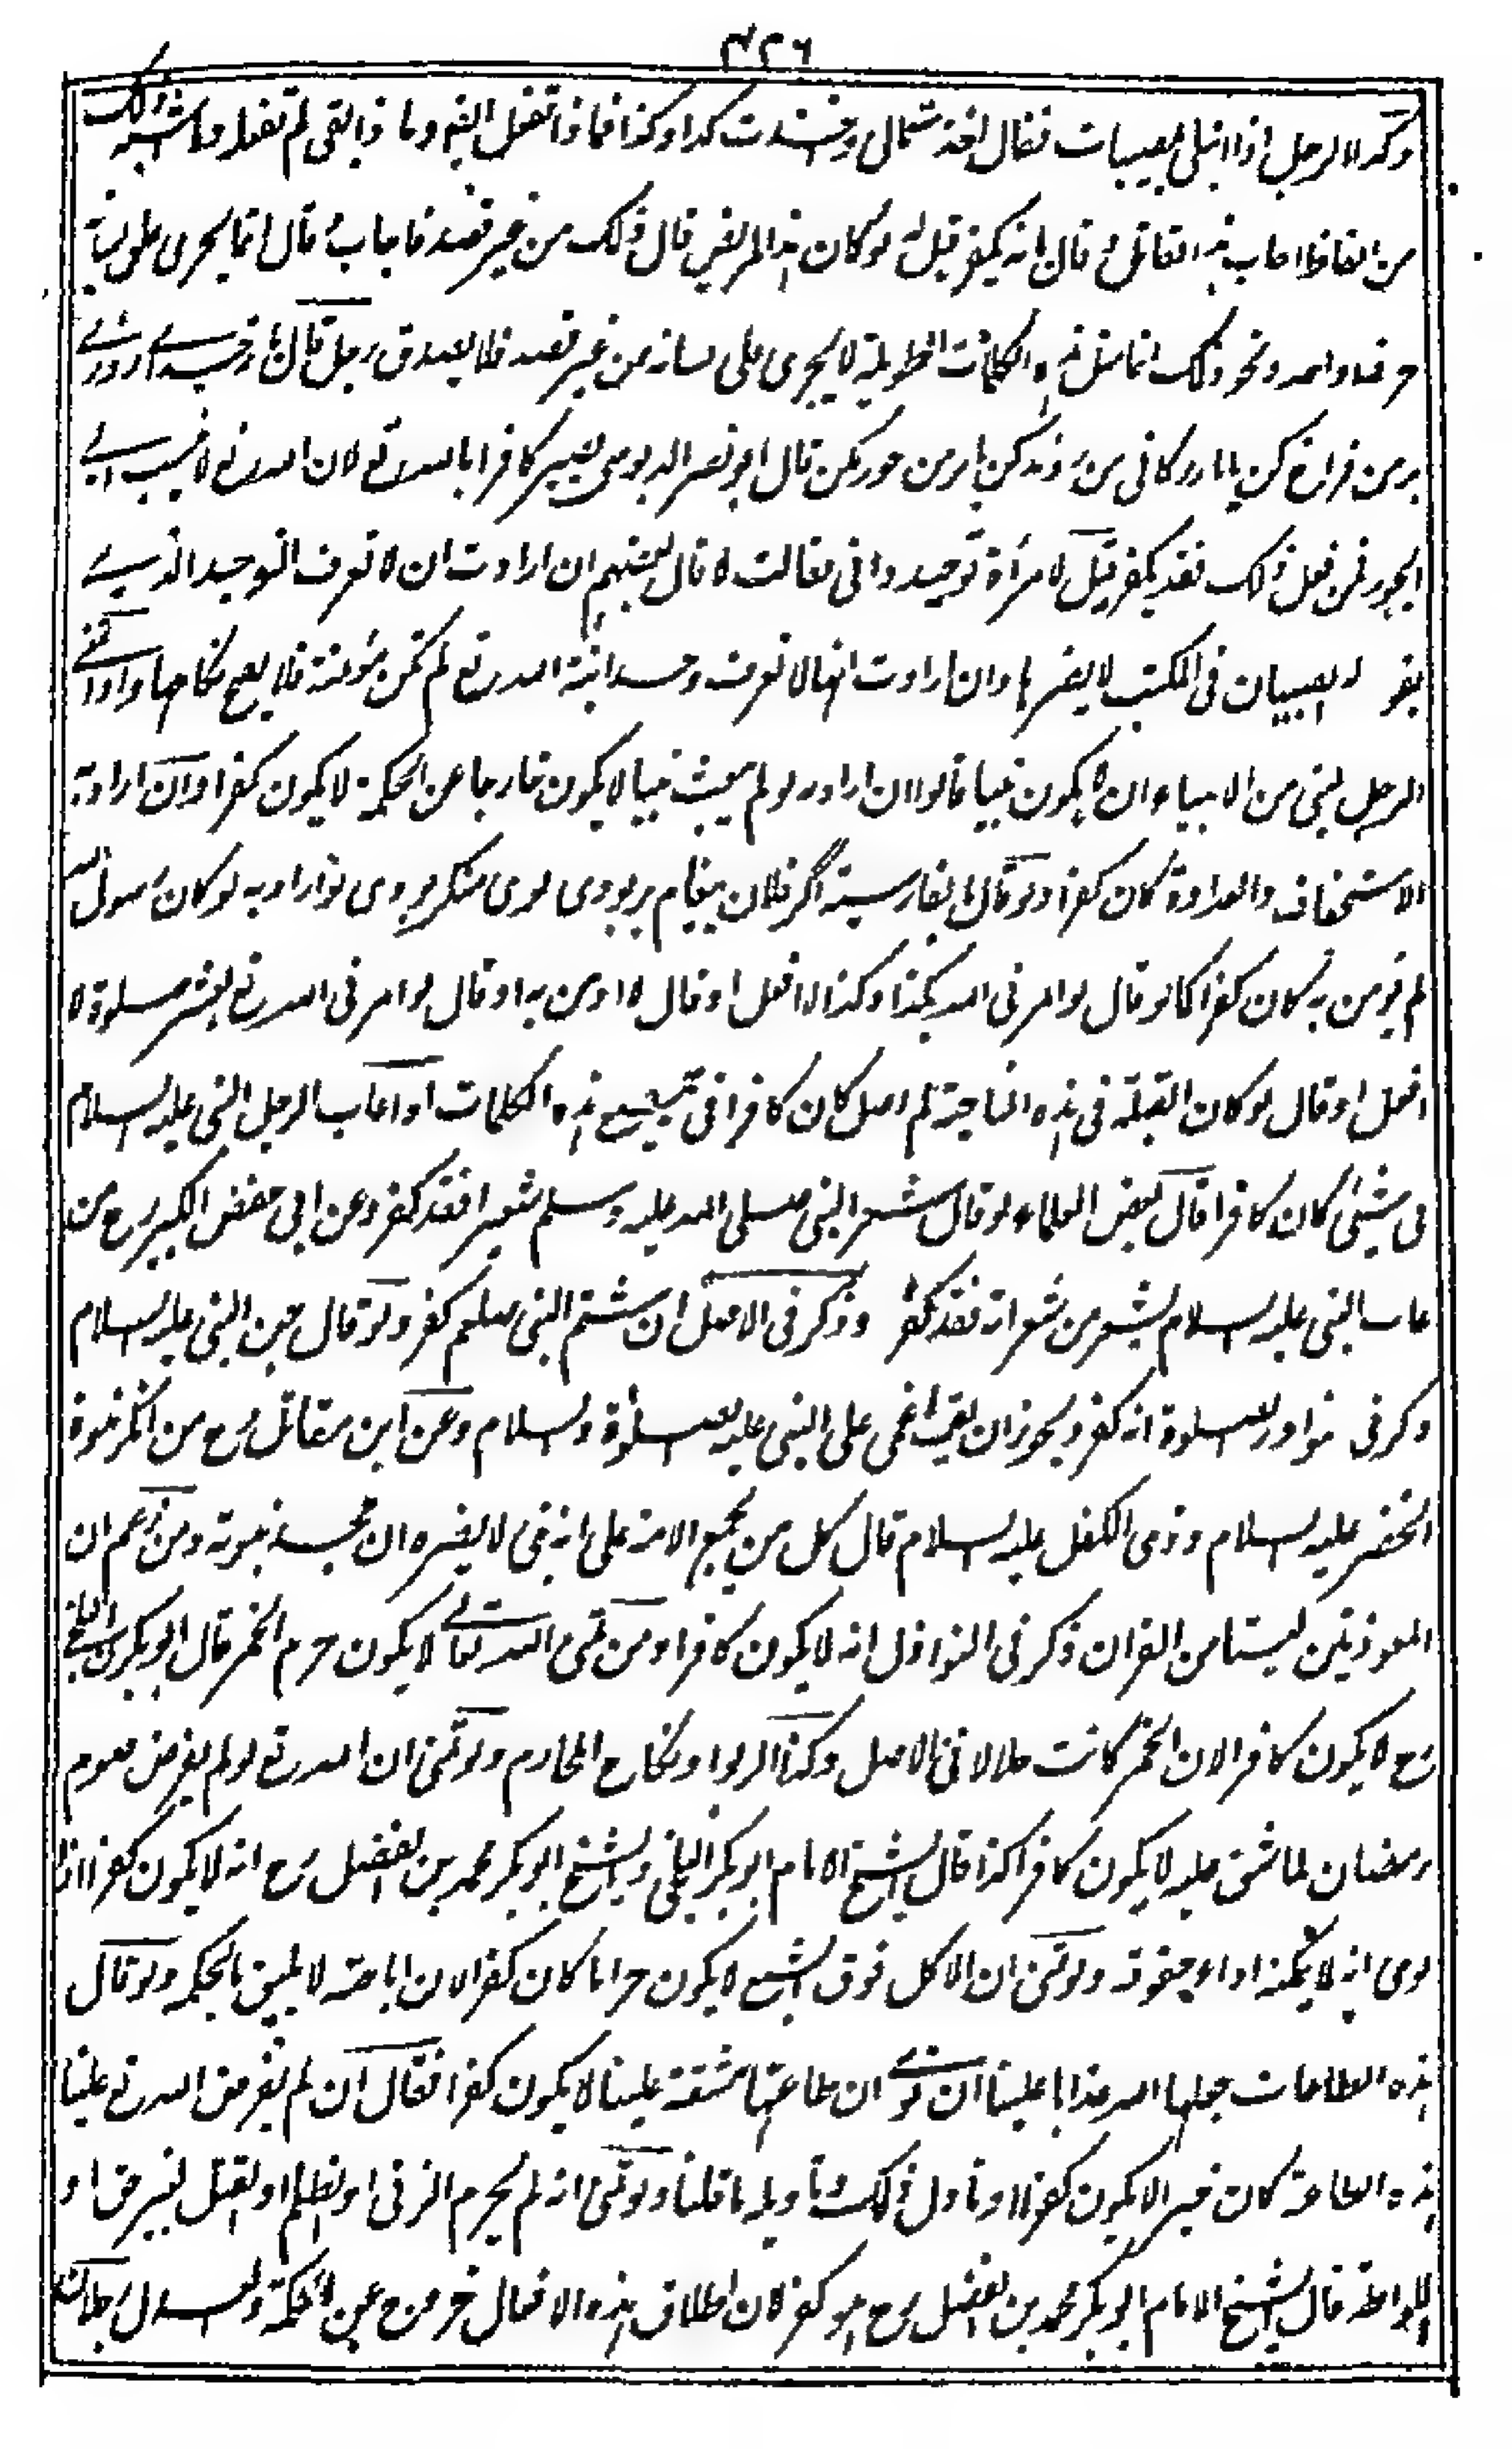 ٤٢٦
وكذلك الرجل اذا ابتلى بمصيبات فقال اخذت مالى واخذت كذا وكذا فماذا تفعل ايضا وماذا بقى لم تفعله وما اشبه ذلك
من الفاظ اجاب هذا القائل وقال انه يكفر قيل له لو كان هذا المريض قال ذلك من غير قصد فاجاب وقال انما يجرى على لسانه
حرف واحد ونحو ذلك اما مثل هذه الكلمات الطويلة لا يجرى على لسانه من غير قصد فلا يصدق رجل قال يا رب روزى
بر من فراخ كن يا بازركانى من رونده كن يا بر من جور مكن قال ابو نصر الدبوسى يصير كافرا بالله تع لان الله تع لا ينسب الى
الجور فمن فعل ذلك فقد يكفر قيل لامرأة توحيد دانى فقالت لا قال بعضهم ان ارادت ان لا تعرف التوحيد الذى
يقوله الصبيان فى المكتب لا يضرها وان ارادت انها لا تعرف وحدانية الله تع لم تكن مؤمنة فلا يصح نكاحها واذا تمنى
الرجل لنبى من الانبياء ان لا يكون نبيا قالوا ان اراد به لو لم يبعث نبيا لا يكون خارجا عن الحكمة لا يكون كفرا وان اراد به
الاستخفاف والعداوة كان كفرا ولو قال بالفارسية اگر فلان پيغامبر بودى بوى منكر بودى لو اراد به لو كان رسول الله
لم يؤمن به كان كفرا كما لو قال لو امرنى الله بكذا وكذا لا افعل او قال لا اومن به او قال لو امرنى الله تع بعشر صلوة لا
افعل او قال لو كان القبلة فى هذه الناحية لم اصل كان كافرا فى جميع هذه الكلمات او اعاب الرجل النبى عليه السلام
فى شىء كان كافرا قال بعض العلماء لو قال شعر النبى صلى الله عليه وسلم شعيرا فقد كفر وعن ابى حفص الكبير رح من
عاب النبى عليه السلام بشعر من شعراته فقد كفر وذكر فى الاصل ان شتم النبى صلعم كفر ولو قال جن النبى عليه السلام
ذكر فى نوادر الصلوة انه كفر ويجوز ان يقال اغمى على النبى عليه الصلوة والسلام وعن ابن مقاتل رح من انكر نبوة
الخضر عليه السلام وذى الكفل عليه السلام قال كل من يجمع الامة على انه نبى لا يضره ان جحد نبوته ومن زعم ان
المعوذتين ليستا من القران ذكر فى النوازل انه لا يكون كافرا ومن تمنى الله تعالى لا يكون حرم الخمر قال ابو بكر البلخى
رح لا يكون كافرا لان الخمر كانت حلالا فى الاصل وكذا الربوا ونكاح المحارم ولو تمنى ان الله تع لو لم يفرض صوم
رمضان لما شق عليه لا يكون كافرا كذا قال الشيخ الامام ابو بكر البلخى والشيخ ابو بكر محمد بن الفضل رح انه لا يكون كفرا اذا
نوى انه لا يمكنه اداء حقوقه ولو تمنى ان الاكل فوق الشبع لا يكون حراما كان كفرا لان اباحته لا يليق بالحكمة ولو قال
هذه الطاعات جعلها الله عذابا علينا ان نوى ان طاعتها مشقة علينا لا يكون كفرا فقال ان لم يفرض الله تع علينا
هذه الطاعة كان خيرا لا يكون كفرا لو تاول ذلك وتأويله ما قلنا ولو تمنى انه لم يحرم الزنى او الظلم او القتل بغير حق او
اللواطة قال الشيخ الامام ابو بكر محمد بن الفضل رح هو كفر لان اطلاق هذه الافعال خروج عن الحكمة ولو سال رجل